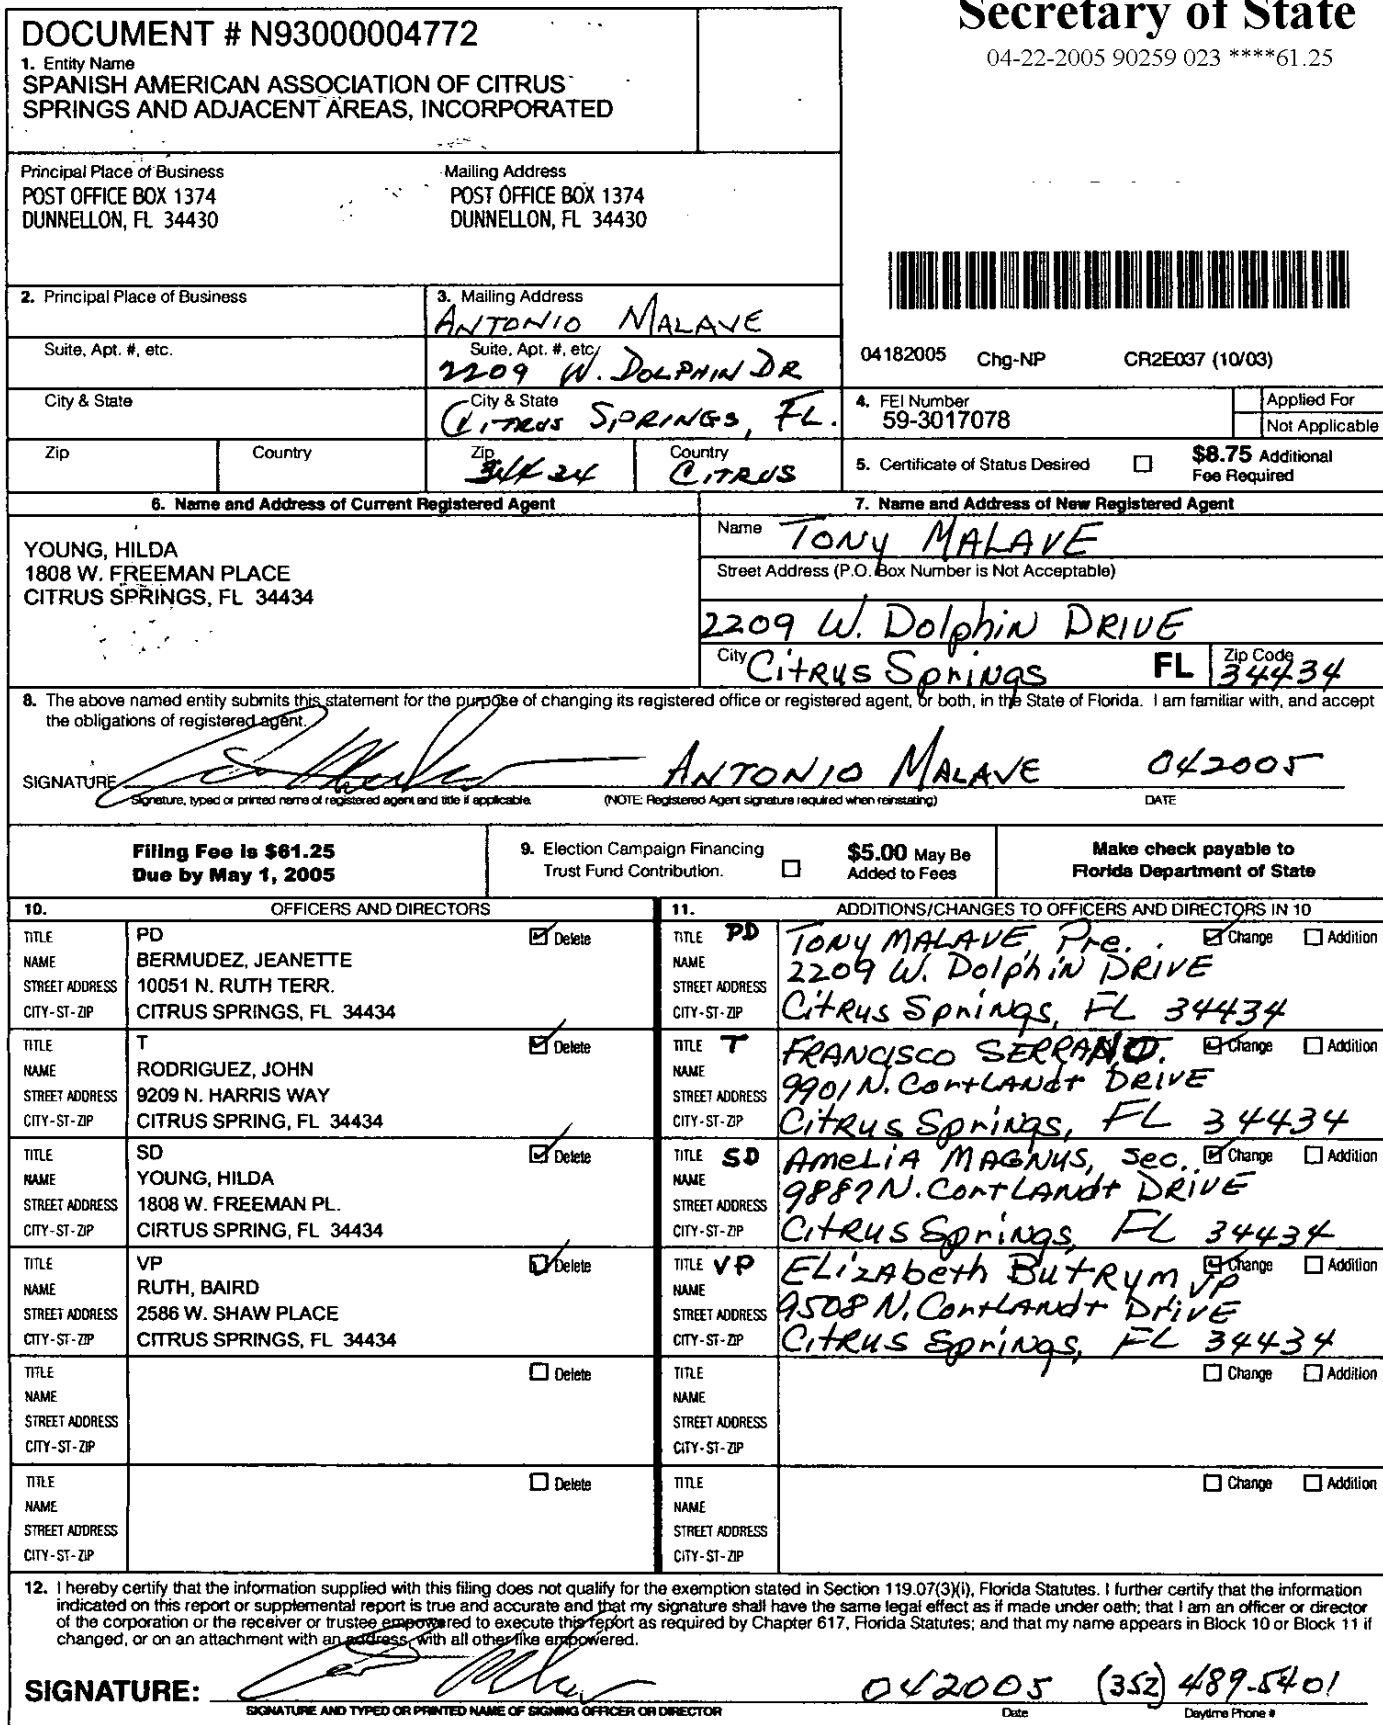 Secretary of State
04-22-2005 90259 023 ****61.25
DOCUMENT # N93000004772
1. Entity Name
SPANISH AMERICAN ASSOCIATION OF CITRUS
SPRINGS AND ADJACENT AREAS, INCORPORATED
Principal Place of Business
POST OFFICE BOX 1374
DUNNELLON, FL 34430
Mailing Address
POST OFFICE BOX 1374
DUNNELLON, FL 34430
2. Principal Place of Business
3. Mailing Address
ANTONIO MALAVE
Suite, Apt. #, etc.
Suite, Apt. #, etc.
2209 W. DOLPHIN DR
City & State
City & State
CITRUS SPRINGS, FL.
Zip
Country
Zip
34434
Country
CITRUS
04182005 Chg-NP CR2E037 (10/03)
4. FEI Number
59-3017078
Applied For
Not Applicable
5. Certificate of Status Desired
$8.75 Additional
Fee Required
6. Name and Address of Current Registered Agent
YOUNG, HILDA
1808 W. FREEMAN PLACE
CITRUS SPRINGS, FL 34434
7. Name and Address of New Registered Agent
Name TONY MALAVE
Street Address (P.O. Box Number is Not Acceptable)
2209 W. Dolphin DRIVE
City Citrus Springs FL Zip Code 34434
8. The above named entity submits this statement for the purpose of changing its registered office or registered agent, or both, in the State of Florida. I am familiar with, and accept
the obligations of registered agent.
SIGNATURE ANTONIO MALAVE 042005
Signature, typed or printed name of registered agent and title if applicable. (NOTE: Registered Agent signature required when reinstating) DATE
Filing Fee is $61.25
Due by May 1, 2005
9. Election Campaign Financing
Trust Fund Contribution.
$5.00 May Be
Added to Fees
Make check payable to
Florida Department of State
10. OFFICERS AND DIRECTORS
TITLE PD Delete
NAME BERMUDEZ, JEANETTE
STREET ADDRESS 10051 N. RUTH TERR.
CITY-ST-ZIP CITRUS SPRINGS, FL 34434
TITLE T Delete
NAME RODRIGUEZ, JOHN
STREET ADDRESS 9209 N. HARRIS WAY
CITY-ST-ZIP CITRUS SPRING, FL 34434
TITLE SD Delete
NAME YOUNG, HILDA
STREET ADDRESS 1808 W. FREEMAN PL.
CITY-ST-ZIP CIRTUS SPRING, FL 34434
TITLE VP Delete
NAME RUTH, BAIRD
STREET ADDRESS 2586 W. SHAW PLACE
CITY-ST-ZIP CITRUS SPRINGS, FL 34434
TITLE Delete
NAME
STREET ADDRESS
CITY-ST-ZIP
TITLE Delete
NAME
STREET ADDRESS
CITY-ST-ZIP
11. ADDITIONS/CHANGES TO OFFICERS AND DIRECTORS IN 10
TITLE PD TONY MALAVE, Pre. Change Addition
NAME 2209 W. Dolphin DRIVE
STREET ADDRESS
CITY-ST-ZIP Citrus Springs, FL 34434
TITLE T FRANCISCO SERRANO. Change Addition
NAME
STREET ADDRESS 9901 N. CortLANdt DRIVE
CITY-ST-ZIP Citrus Springs, FL 34434
TITLE SD AMELIA MAGNUS, Sec. Change Addition
NAME
STREET ADDRESS 9887 N. CortLANdt DRIVE
CITY-ST-ZIP Citrus Springs, FL 34434
TITLE VP ELizAbeth ButRym VP Change Addition
NAME
STREET ADDRESS 9508 N. CortLANdt DriVE
CITY-ST-ZIP Citrus Springs, FL 34434
TITLE Change Addition
NAME
STREET ADDRESS
CITY-ST-ZIP
TITLE Change Addition
NAME
STREET ADDRESS
CITY-ST-ZIP
12. I hereby certify that the information supplied with this filing does not qualify for the exemption stated in Section 119.07(3)(i), Florida Statutes. I further certify that the information
indicated on this report or supplemental report is true and accurate and that my signature shall have the same legal effect as if made under oath; that I am an officer or director
of the corporation or the receiver or trustee empowered to execute this report as required by Chapter 617, Florida Statutes; and that my name appears in Block 10 or Block 11 if
changed, or on an attachment with an address, with all other like empowered.
SIGNATURE: 042005 (352) 489-5401
SIGNATURE AND TYPED OR PRINTED NAME OF SIGNING OFFICER OR DIRECTOR Date Daytime Phone #